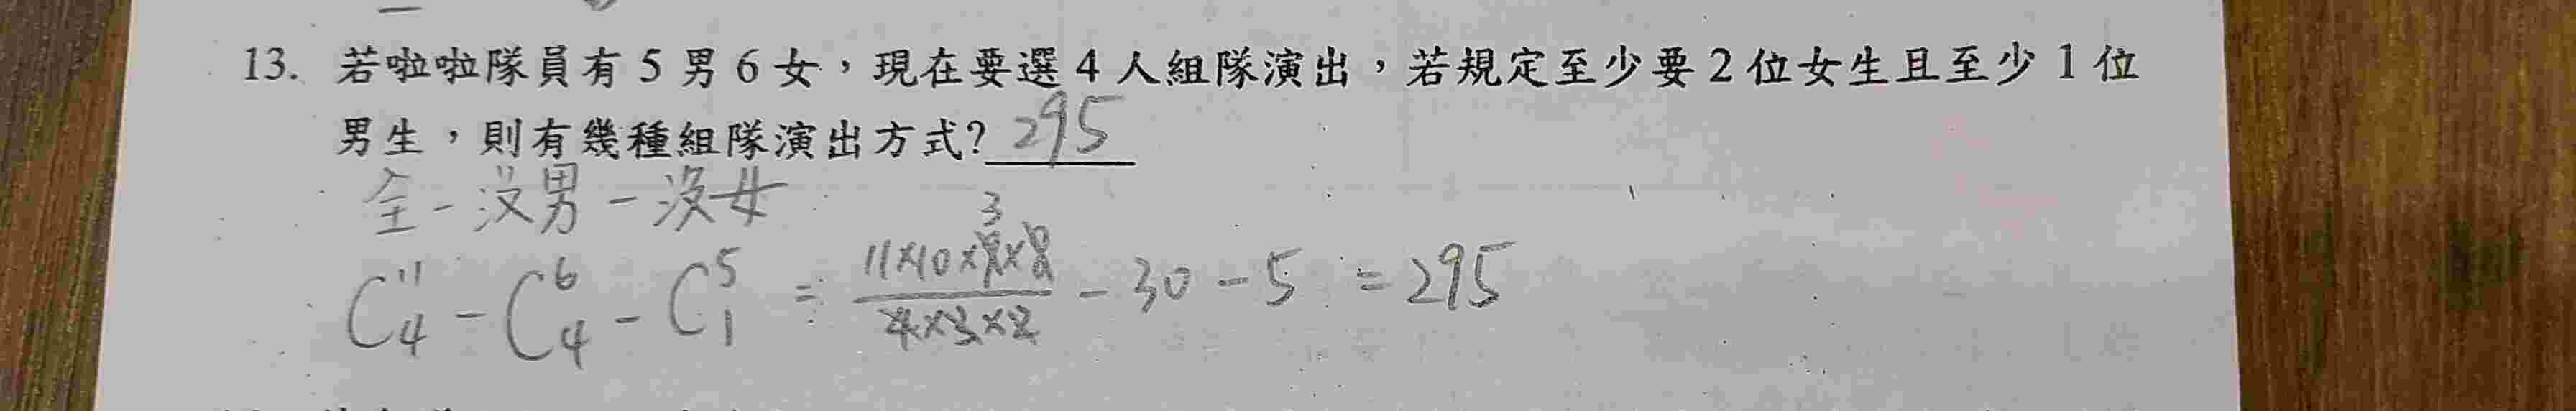 13. 若啦啦隊員有 5 男 6 女，現在要選 4 人組隊演出，若規定至少要 2 位女生且至少 1 位
男生，則有幾種組隊演出方式? 295
全 - 沒男 - 沒女
C¹¹₄ - C⁶₄ - C⁵₁ = (11×10×9×8)/(4×3×2) - 30 - 5 = 295
3